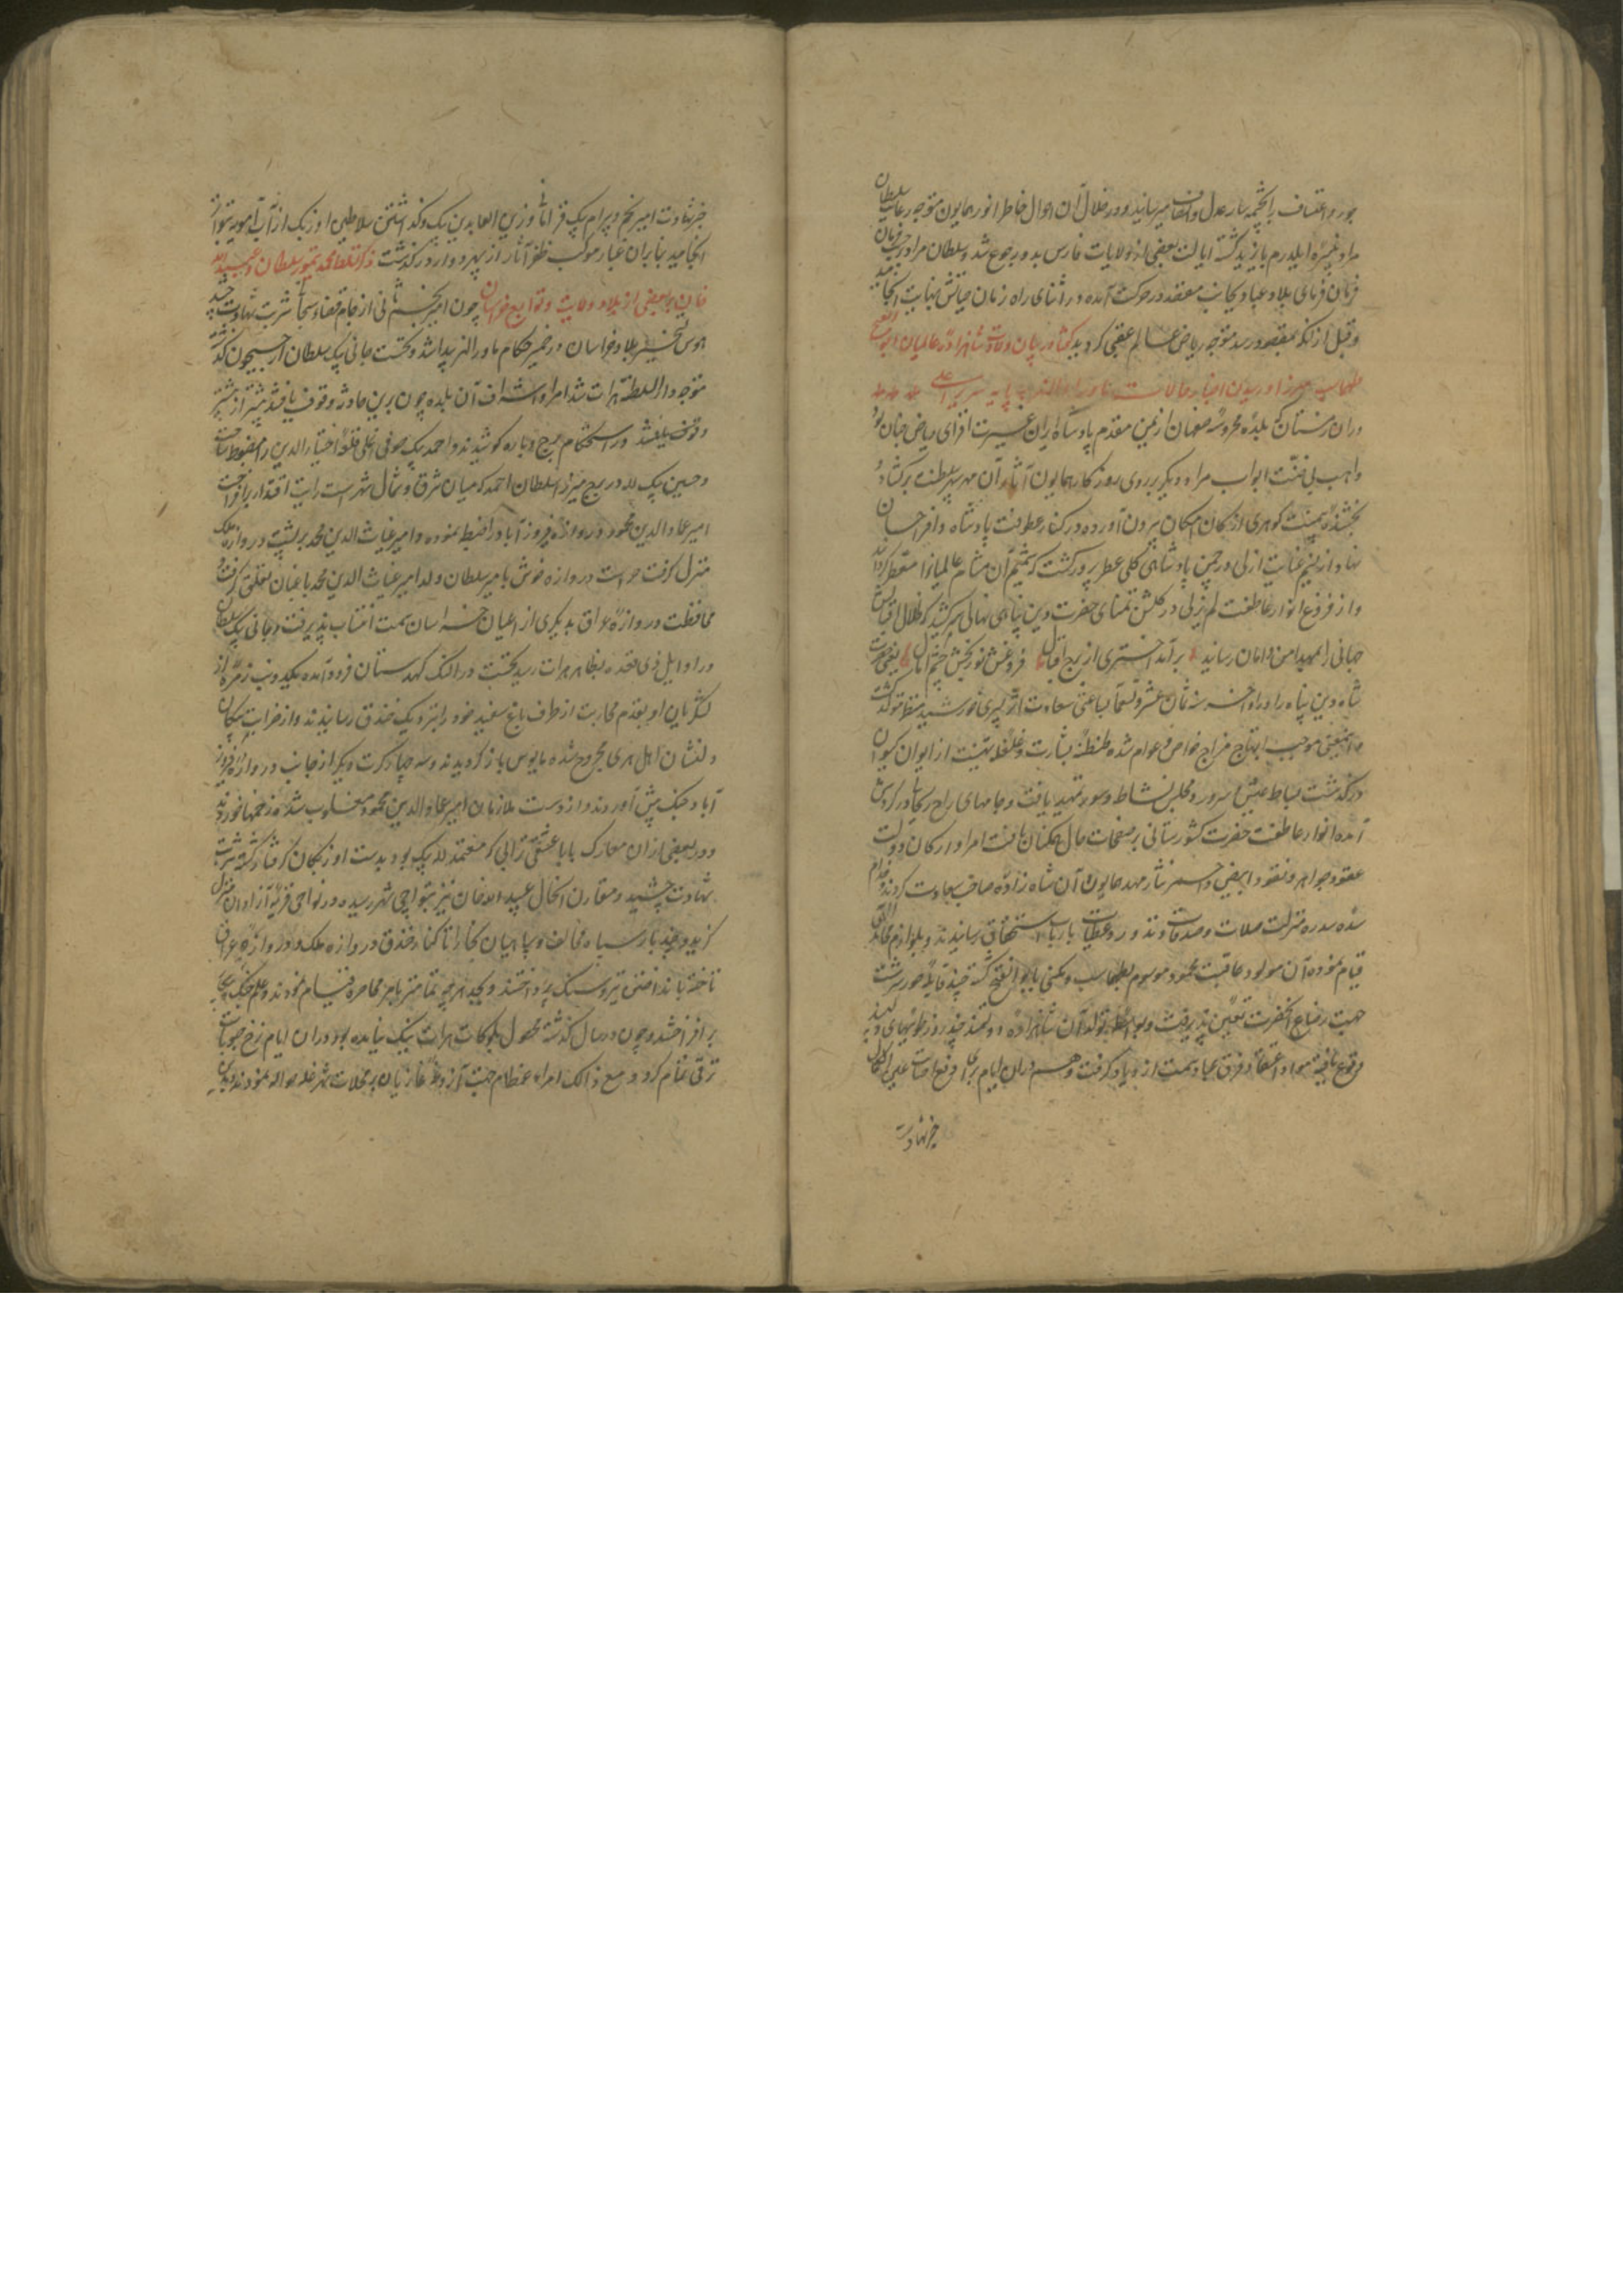 جور و اعتساف را بچشمه سار عدل و انصاف میرسانید و در خلال آن احوال خاطر انور همایون متوجه رعایت سلطان
مراد نبیره ایلدرم بایزید گشته ایالت بعضی از ولایات فارس بدو رجوع شد و سلطان مراد بر حسب فرمان
فرمان فرمای بلاد و عباد بجانب مقصد در حرکت آمده در اثنای راه زمان حیاتش بنهایت انجامید
و قبل از آنکه بمقصد رسد متوجه ریاض عالم عقبی گردید گفتار در بیان ولادت شاهزاده عالمیان ابو الفتح
طهماسب میرزا و رسیدن اخبار حالات ماوراءالنهر بپایه سریر اعلی
در ان زمستان که بلده محروسه صفهان از یمن مقدم پادشاه ایران غیرت افزای ریاض جنان بود
واهب بی ضنت ابواب مراد دیگر بر روی روزگار همایون آثار آن مهر سپهر سلطنت برگشاد
بخشنده بیمنت گوهری از کان امکان بیرون آورده در کنار عطوفت پادشاه وافر احسان
نهاد و از نسیم عنایت ازلی در چمن پادشاهی گلی عطر پرور گشت که شمیم آن مشام عالمیانرا معطر گرداند
و از فروغ انوار عاطفت لم یزلی در گلشن تمنای حضرت دین پناهی نهالی سر کشید که ظلال اقبالش
جهانی را بمهد امن و امان رسانید برآمد اختری از برج اقبال فروغش نور بخش چشم آمال یعنی حضرت
شاه دین پناه را در اواخر سنه ثمان عشر و تسعمایه باعثی سعادت اثر پسری خورشید منظر متولد گشت
و این معنی موجب ابتهاج مزاج خواص و عوام شده طنطنه بشارت و غلغله تهنیت از ایوان کیوان
درگذشت بساط عیش و سرور و مجلس نشاط و سور تمهید یافت و جامهای راح ریحانی در گردش
آمده انوار عاطفت حضرت کشورستانی بر صفحات حال همگنان تافت امرا و ارکان دولت
عقود جواهر و نقود ابیض و احمر نثار مهد همایون آن شاه زاده صاحب سعادت کردند و خدام
سده سدره منزلت صلات و صدقات و نذور و عطیات بارباب استحقاق رسانیدند و بلوازم
قیام نموده آن مولود عاقبت محمود موسوم بطهاسب و مکنی بابو الفتح گشته چند قابله حور سرشت
جهت رضاع آنحضرت تعیین پذیرفت و بواسطه تولد آن شاهزاده دولتمند چند روز طویهای دلپسند
وقوع یافته مواد اعتقاد فرق عباد سمت ازدیاد گرفت و هم در ان ایام
خبر شهادت
خبر شهادت امیر نجم و بیرام بیک قرامانلو و زین العابدین بیک و گذشتن سلاطین اوزبک از آب آمویه بتواتر
انجامید بنابران غبار موکب ظفر آثار از سپهر دوار درگذشت ذکر تسلط محمد تیمور سلطان و عبید الله
خان بر بعضی از بلاد و ولایت و توابع خراسان چون امیر نجم ثانی از جام قضا و سجا شربت شهادت چشید
هوس تسخیر بلاد خراسان در ضمیر حکام ماوراالنهر پیدا شد و نخست جانی بیک سلطان از جیحون گذشته
متوجه دار السلطنه هرات شد امرا و اشراف آن بلده چون برین حادثه وقوف یافتند پیشتر از پیشتر
در استحکام برج و باره کوشیدند و احمد بیک صوفی اغلی قلعه اختیار الدین را مضبوط ساخت
و حسین بیک لله در برج میرزا سلطان احمد که میان شرق و شمال شهر است رایت اقتدار برافراخت
امیر عماد الدین محمود دروازه فیروز آباد را ضبط نموده و امیر غیاث الدین محمد بر پشت دروازه ملک
منزل گرفت حراست دروازه خوش بامیر سلطان ولد امیر غیاث الدین محمد باغبان تعلق گرفت و
محافظت دروازه عراق بدیگری از اعیان خراسان سمت انتساب پذیرفت و جانی بیک سلطان
در اوایل ذی قعده بظاهر هرات رسید نخست در النک کهدستان فرود آمده یکدو نوبت زمره از
لشکریان او بقدم محاربت از طرف باغ سفید خود را بنزدیک خندق رسانیدند و از ضرب پیکان
دلنشان اهل هری مجروح شده مایوس باز گردیدند و سه چهار کرت دیگر از جانب دروازه فیروز
آباد جنگ پیش آوردند و از دست ملازمان امیر عماد الدین محمود مغلوب شده زخمها خوردند
و در بعضی از ان معارک بابا عشقی ترابی که معتمد لله بیک بود بدست اوزبکان گرفتار گشته شربت
شهادت چشید و مقارن آنحال عبید الله خان نیز بنواحی شهر رسیده در نواحی قریه آزادان منزل
گزید و چند بار سپاه مخالف و سپاهیان بخارا تا کنار خندق دروازه ملک و دروازه عراق
تاخته بانداختن تیر و سنگ پرداختند و بجد هر چه تمامتر بامر محاصره قیام نمودند و علم جنگ
بر افراختند و چون در سال گذشته محصول بلوکات هرات نیک نیامده بود در ان ایام نرخ حبوبات
ترقی تمام کرد و مع ذالک امراء عظام جهت آزوقه غازیان بر محلات شهر غله حواله نمودند